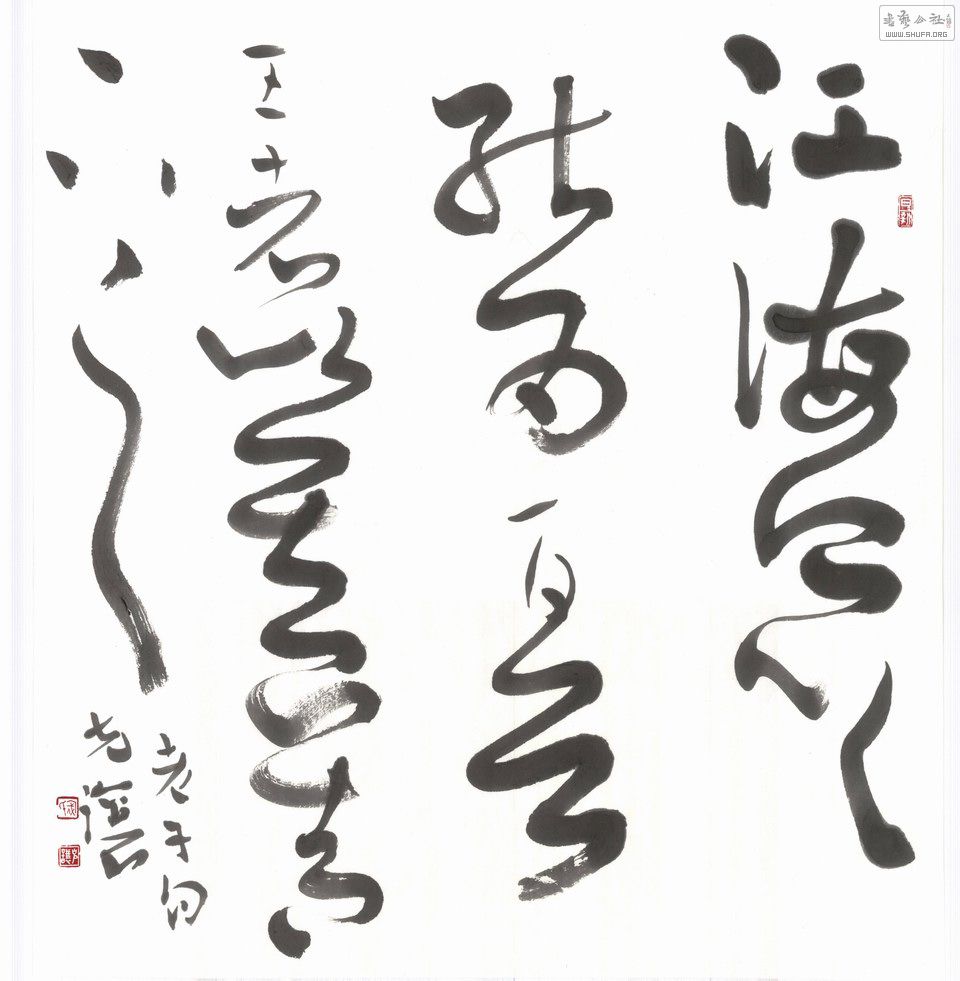 書藝公社
WWW.SHUFA.ORG
江海所以
能為百谷
王者以其善
下之
老子句